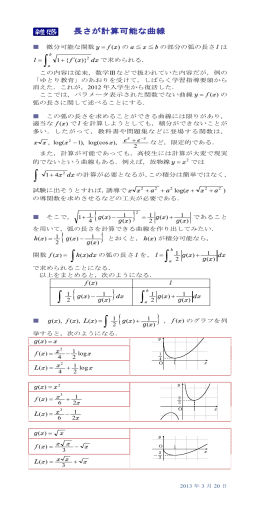 雑談 長さが計算可能な曲線
■ 微分可能な関数 y = f(x) の a ≦ x ≦ b の部分の弧の長さ l は
l = ∫_a^b √(1 + {f'(x)}²) dx で求められる.
この内容は従来，数学Ⅲなどで扱われていた内容だが，例の
「ゆとり教育」のあおりを受けて，しばらく学習指導要領から
消えた．これが，2012 年入学生から復活した．
ここでは，パラメータ表示された関数でない曲線 y = f(x) の
弧の長さに関して述べることにする．
■ この弧の長さを求めることができる曲線には限りがあり，
適当な f(x) で l を計算しようとしても，積分ができないことが
多い．したがって，教科書や問題集などに登場する関数は，
x√x , log(x² − 1), log(cos x), (eˣ + e⁻ˣ)/2 など，限定的である．
また，計算が可能であっても，高校生には計算が大変で現実
的でないという曲線もある．例えば，放物線 y = x² では
∫√(1 + 4x²) dx の計算が必要となるが，この積分は簡単ではなく，
試験に出そうとすれば，誘導で x√(x² + a²) + a² log(x + √(x² + a²))
の導関数を求めさせるなどの工夫が必要である．
■ そこで，1 + 1/4 {g(x) − 1/g(x)}² = [1/2 {g(x) + 1/g(x)}]² であること
を用いて，弧の長さを計算できる曲線を作り出してみたい．
h(x) = 1/2 {g(x) − 1/g(x)} とおくと，h(x) が積分可能なら，
関数 f(x) = ∫h(x)dx の弧の長さ l を，l = ∫_a^b 1/2 {g(x) + 1/g(x)} dx
で求められることになる．
以上をまとめると，次のようになる．
f(x) l
∫ 1/2 {g(x) − 1/g(x)} dx ∫_a^b 1/2 {g(x) + 1/g(x)} dx
■ g(x), f(x), L(x) = ∫ 1/2 {g(x) + 1/g(x)} dx ，f(x) のグラフを列
挙すると，次のようになる．
g(x) = x
f(x) = x²/4 − 1/2 log x
L(x) = x²/4 + 1/2 log x
g(x) = x²
f(x) = x³/6 + 1/2x
L(x) = x³/6 − 1/2x
g(x) = √x
f(x) = x√x/3 − √x
L(x) = x√x/3 + √x
2013 年 3 月 20 日